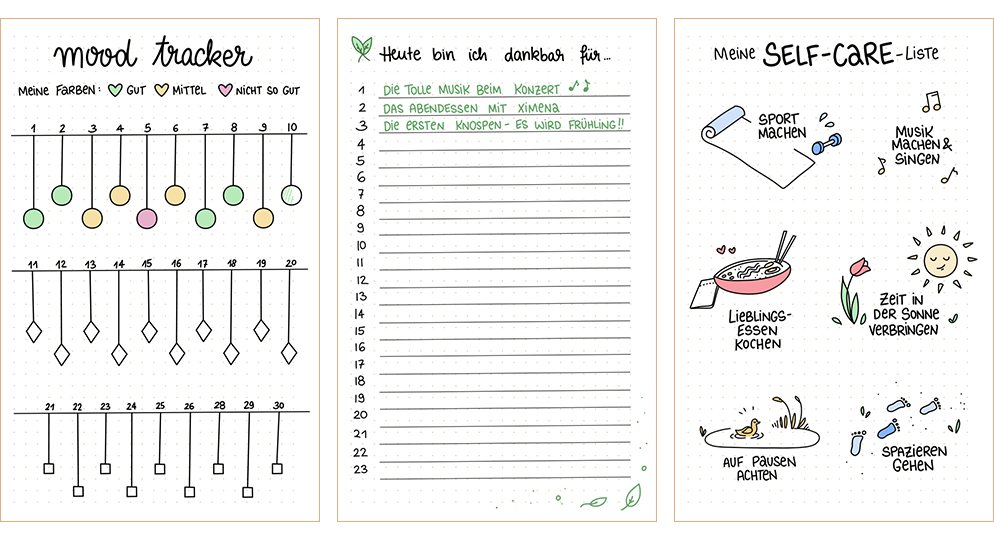 mood tracker
MEINE FARBEN: GUT MITTEL NICHT SO GUT
1 2 3 4 5 6 7 8 9 10
11 12 13 14 15 16 17 18 19 20
21 22 23 24 25 26 28 29 30
Heute bin ich dankbar für...
1 DIE TOLLE MUSIK BEIM KONZERT
2 DAS ABENDESSEN MIT XIMENA
3 DIE ERSTEN KNOSPEN - ES WIRD FRÜHLING!!
4
5
6
7
8
9
10
11
12
13
14
15
16
17
18
19
20
21
22
23
MEINE SELF-CARE-LISTE
SPORT
MACHEN
MUSIK
MACHEN &
SINGEN
LIEBLINGS-
ESSEN
KOCHEN
ZEIT IN
DER SONNE
VERBRINGEN
AUF PAUSEN
ACHTEN
SPAZIEREN
GEHEN